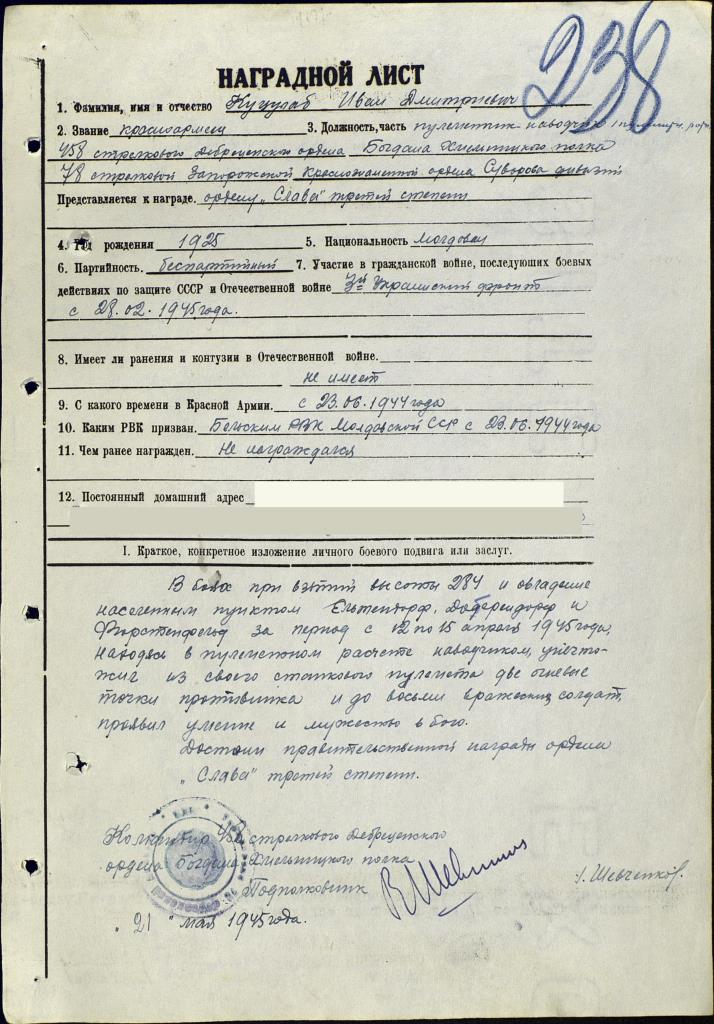 238
НАГРАДНОЙ ЛИСТ
1. Фамилия, имя и отчество Куцулаб Иван Дмитриевич
2. Звание красноармеец 3. Должность, часть пулеметчик наводчик
458 стрелкового Дебреценского ордена Богдана Хмельницкого полка
78 стрелковой Запорожской Краснознаменной ордена Суворова дивизии
Представляется к награде. ордену „Слава" третей степени
4. Год рождения 1925 5. Национальность молдован
6. Партийность. беспартийный 7. Участие в гражданской войне, последующих боевых
действиях по защите СССР и Отечественной войне 3й Украинский фронт
с 28.02.1945 года.
8. Имеет ли ранения и контузии в Отечественной войне.
не имеет
9. С какого времени в Красной Армии. с 23.06.1944 года
10. Каким РВК призван. Бельским РВК Молдавской ССР с 23.06.1944 года
11. Чем ранее награжден. Не награждался
12. Постоянный домашний адрес
I. Краткое, конкретное изложение личного боевого подвига или заслуг.
В боях при взятии высоты 284 и овладение
населенным пунктом Ельтендорф, Доберсдорф и
Фюрстенфельд за период с 12 по 15 апреля 1945 года,
находясь в пулеметном расчете наводчиком, уничто-
жил из своего станкового пулемета две огневые
точки противника и до восьми вражеских солдат,
проявил умение и мужество в бою.
Достоин правительственной награды ордена
„Слава" третей степени.
Командир 458 стрелкового Дебреценского
ордена Богдана Хмельницкого полка
Подполковник
/. Шевченков/.
„21" мая 1945 года.